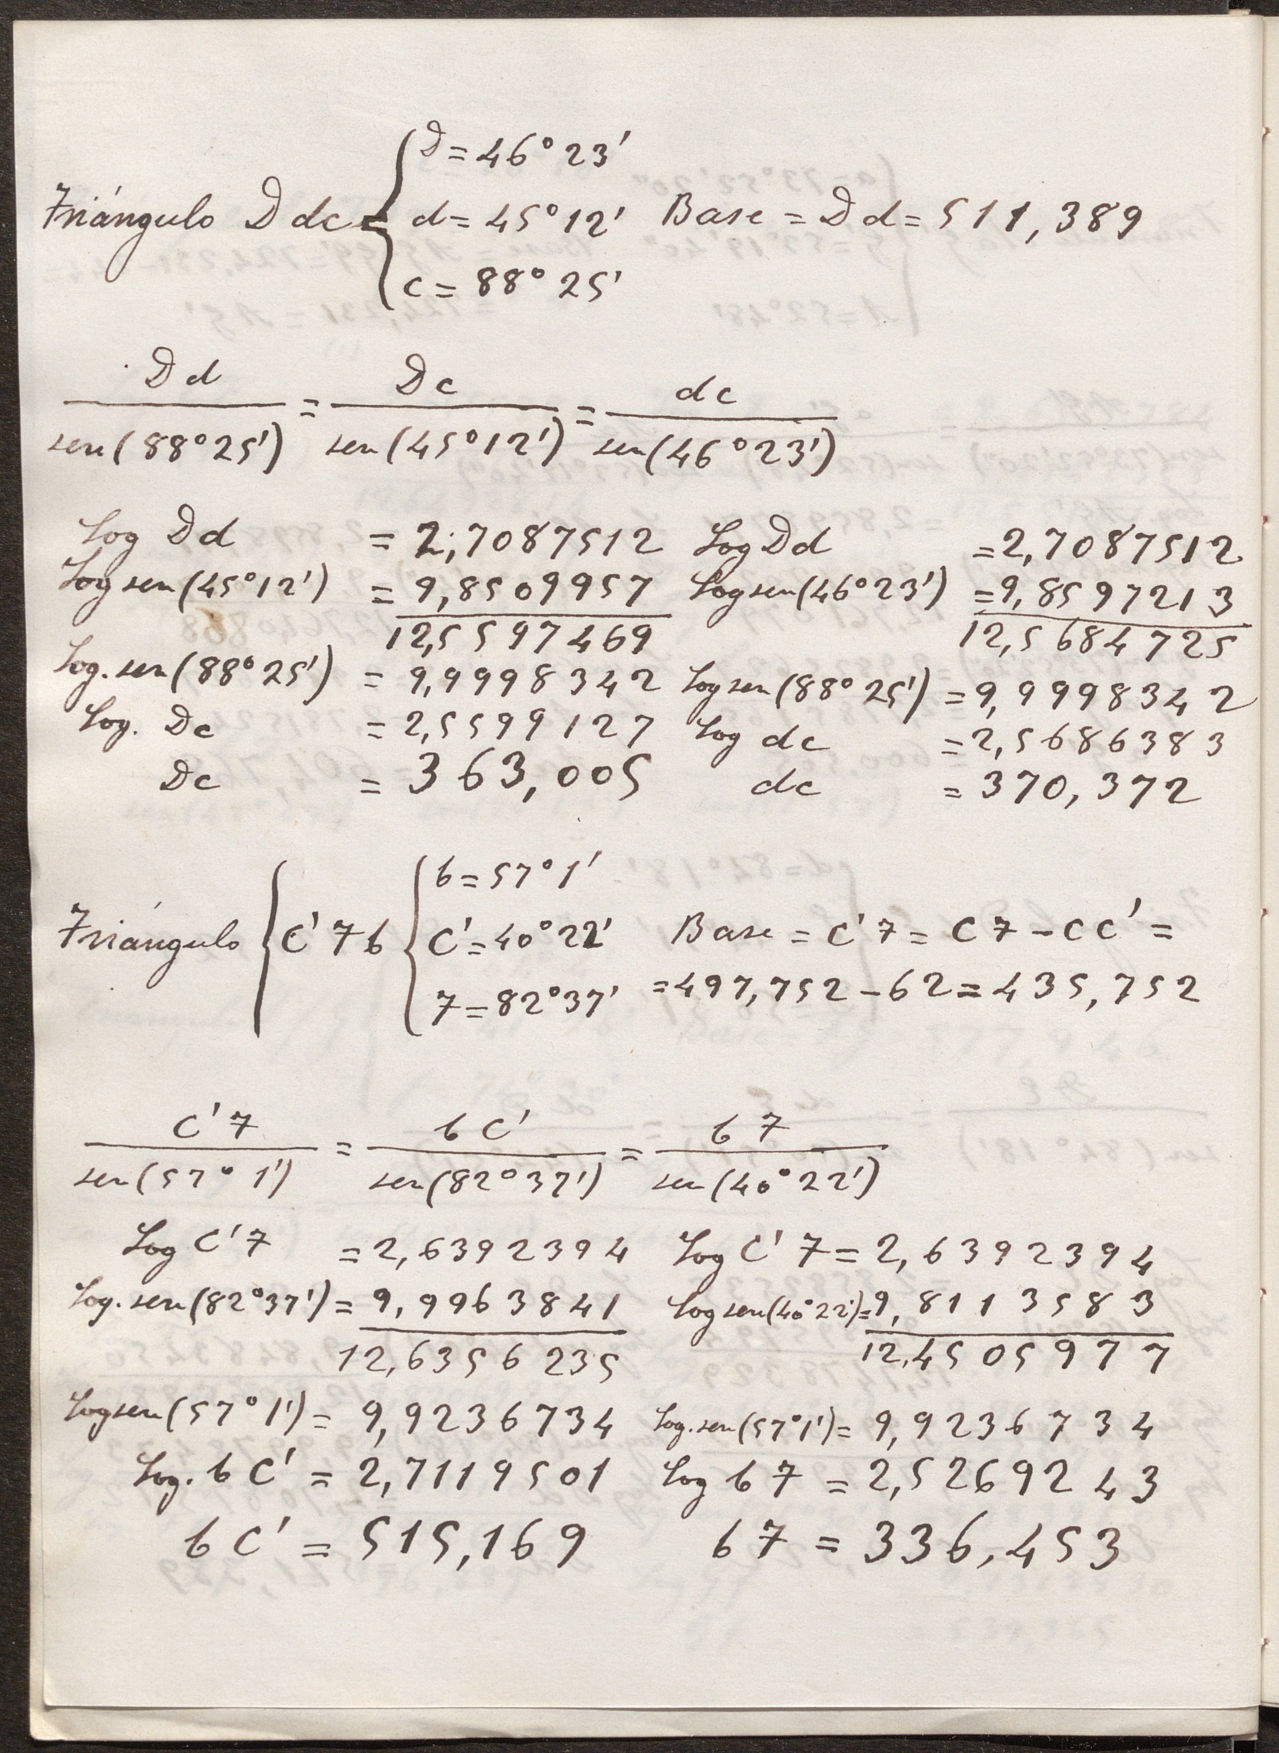 D = 46° 23'
Triángulo D dc = d = 45° 12' Base = D d = 511,389
c = 88° 25'
D d / sen (88° 25') = D c / sen (45° 12') = dc / sen (46° 23')
Log D d = 2,7087512 Log D d = 2,7087512
Log sen (45° 12') = 9,8509957 Log sen (46° 23') = 9,8597213
12,5597469 12,5684725
Log. sen (88° 25') = 9,9998342 Log sen (88° 25') = 9,9998342
Log. Dc = 2,5599127 Log dc = 2,5686383
Dc = 363,005 dc = 370,372
b = 57° 1'
Triángulo C' 7 b C' = 40° 22' Base = C' 7 = C 7 - C C' =
7 = 82° 37' = 497,752 - 62 = 435,752
C' 7 / sen (57° 1') = b C' / sen (82° 37') = b 7 / sen (40° 22')
Log C' 7 = 2,6392394 Log C' 7 = 2,6392394
Log. sen (82° 37') = 9,9963841 Log sen (40° 22') = 9,8113583
12,6356235 12,4505977
Log sen (57° 1') = 9,9236734 Log. sen (57° 1') = 9,9236734
Log. b C' = 2,7119501 Log b 7 = 2,5269243
b C' = 515,169 b 7 = 336,453